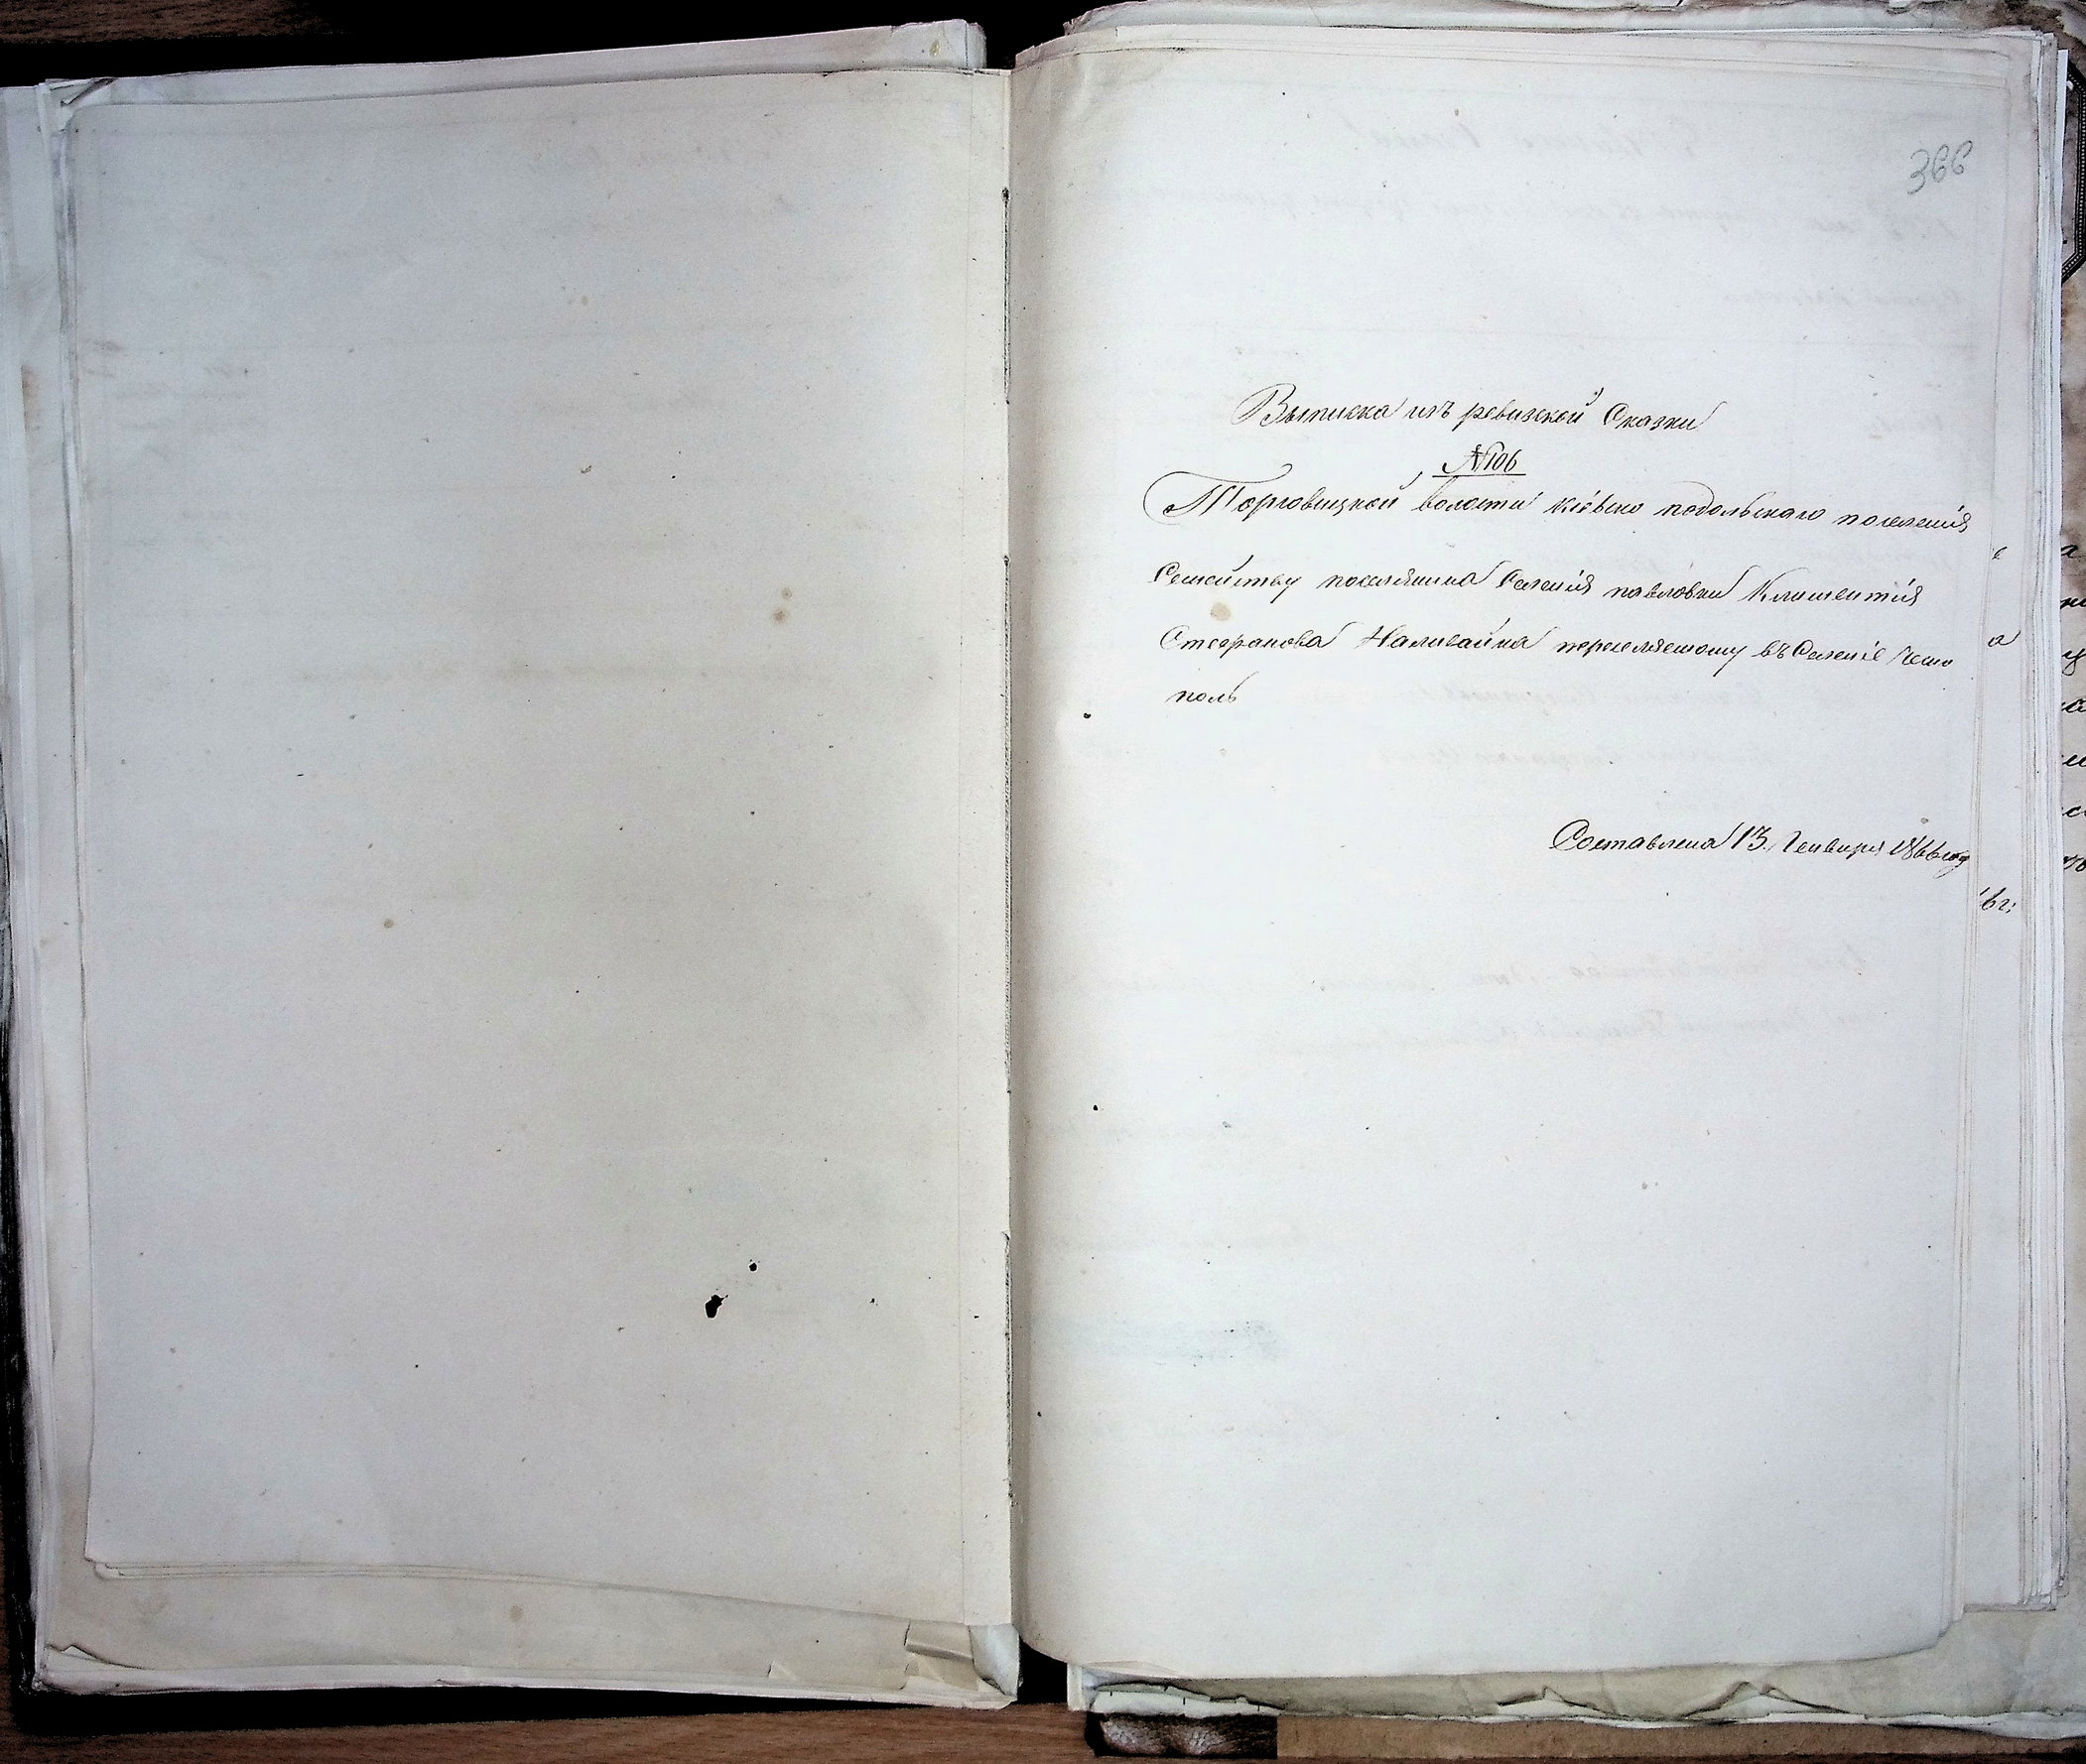 366
Выписка изъ ревизской Сказки
№106
Торговицкой волости Кіевско подольскаго поселенія
Семейству поселянина Селенія павловки Климентія
Стефанова Наливайка переселяемому въ Селеніе
поль
Составлена 13 Генваря 1866 году